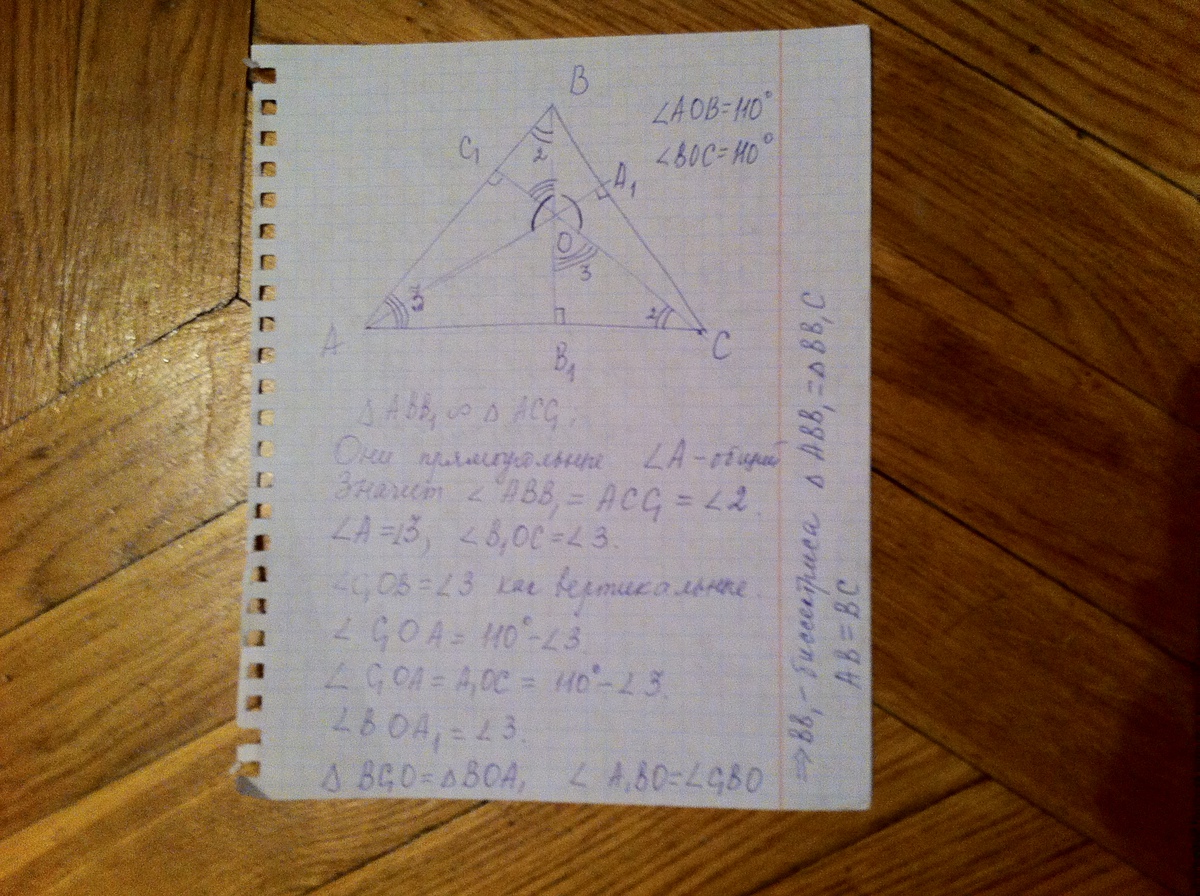 B
∠AOB=110°
C₁
2
∠BOC=110°
A₁
O
3
3
2
A
C
B₁
△ABB₁ ∞ △ACC₁
Они прямоугольные ∠A-общий
Значит ∠ABB₁=ACC₁=∠2.
∠A=∠3, ∠B₁OC=∠3.
∠C₁OB=∠3 как вертикальные.
∠C₁OA=110°-∠3
∠C₁OA=A₁OC=110°-∠3.
∠BOA₁=∠3.
△BC₁O=△BOA₁ ∠A₁BO=∠C₁BO
⇒BB₁-биссектриса △ABB₁=△BB₁C
AB=BC